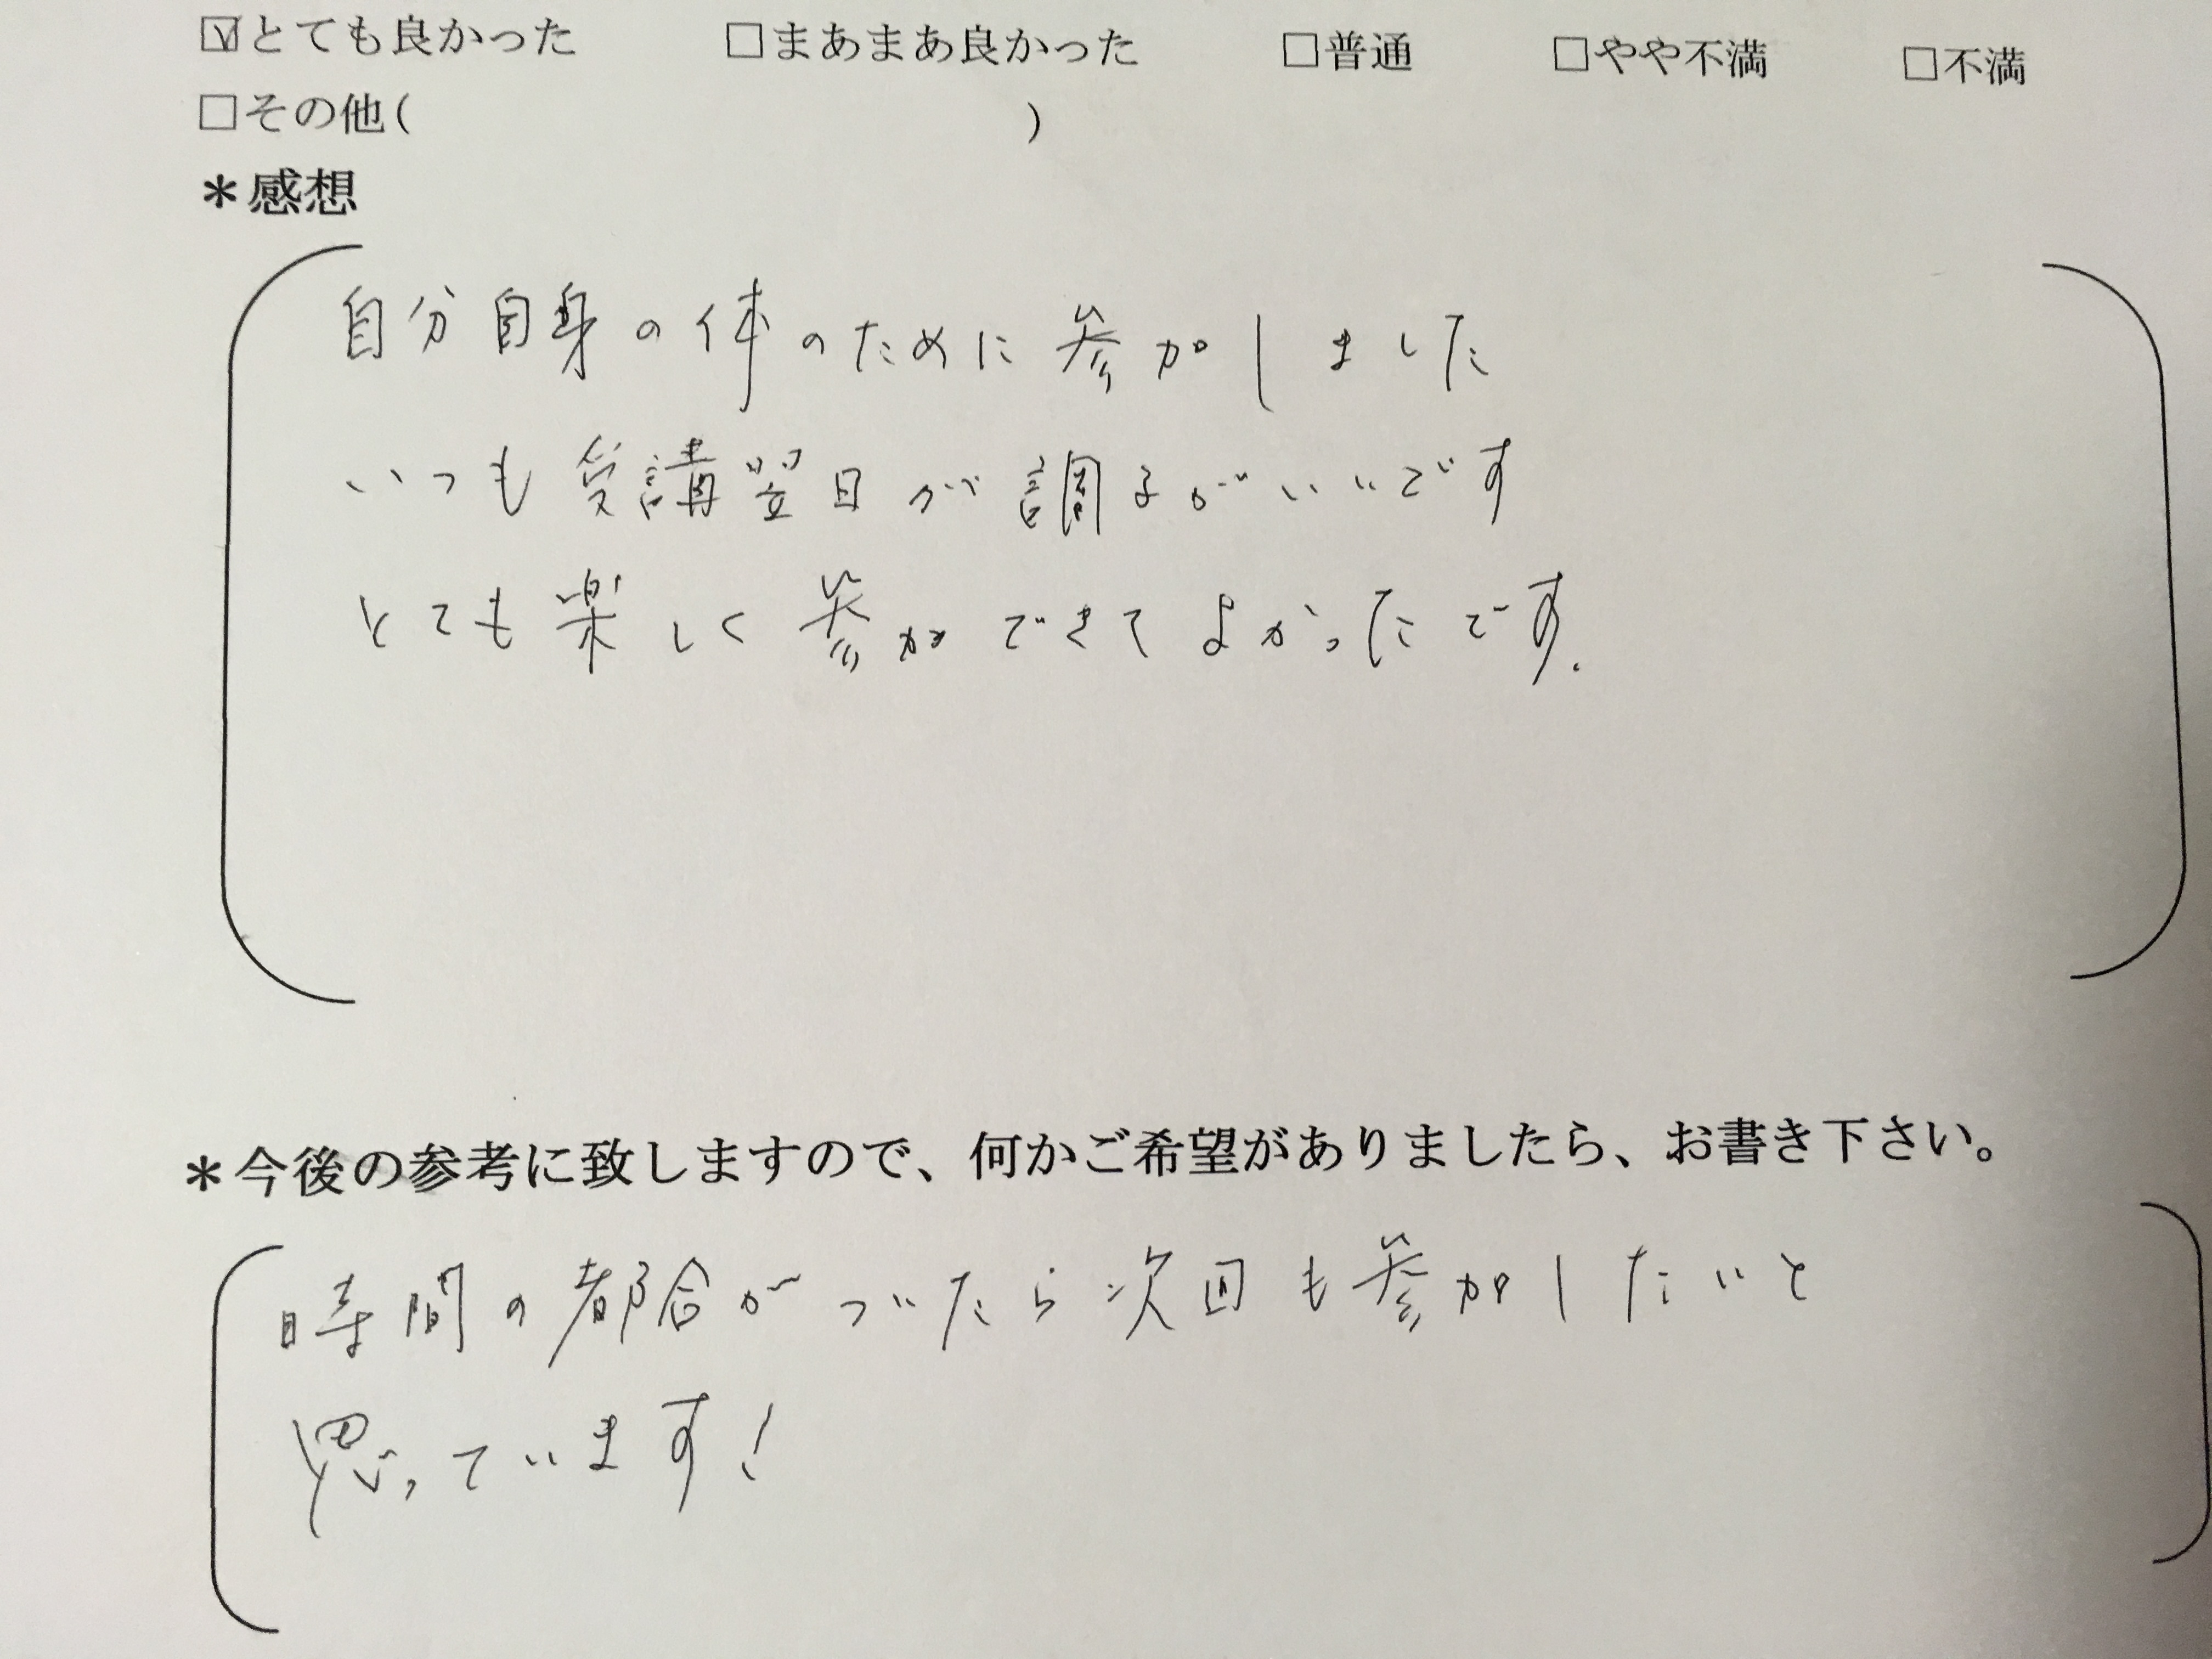 ☑とても良かった □まあまあ良かった □普通 □やや不満 □不満
□その他( )
＊感想
自分自身の体のために参加しました
いつも受講翌日が調子がいいです
とても楽しく参加できてよかったです.
＊今後の参考に致しますので、何かご希望がありましたら、お書き下さい。
時間の都合がついたら次回も参加したいと
思っています！